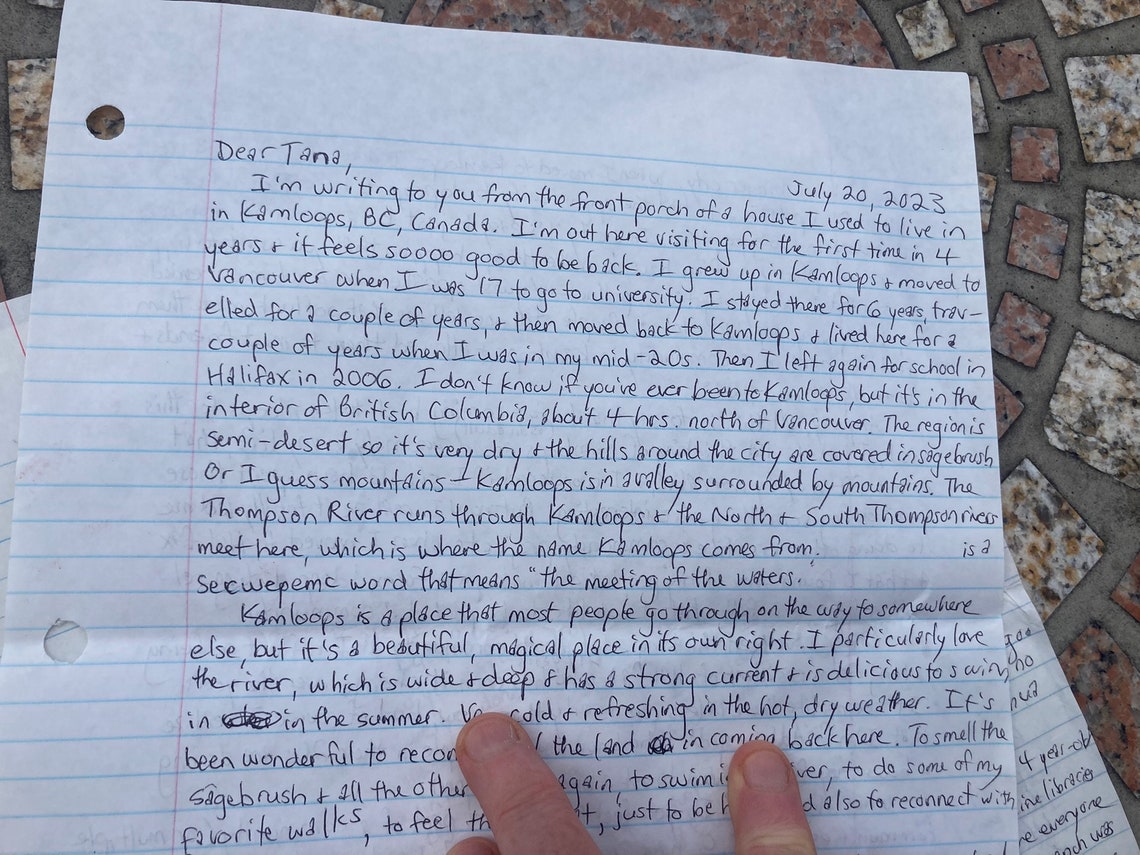 Dear Tana,
July 20, 2023
I'm writing to you from the front porch of a house I used to live in
in Kamloops, BC, Canada. I'm out here visiting for the first time in 4
years & it feels soooo good to be back. I grew up in Kamloops & moved to
Vancouver when I was 17 to go to university. I stayed there for 6 years, trav-
elled for a couple of years, & then moved back to Kamloops & lived here for a
couple of years when I was in my mid-20s. Then I left again for school in
Halifax in 2006. I don't know if you've ever been to Kamloops, but it's in the
interior of British Columbia, about 4 hrs. north of Vancouver. The region is
semi-desert so it's very dry & the hills around the city are covered in sagebrush
Or I guess mountains - Kamloops is in a valley surrounded by mountains. The
Thompson River runs through Kamloops & the North & South Thompson rivers
meet here, which is where the name Kamloops comes from. is a
Secwepemc word that means "the meeting of the waters."
Kamloops is a place that most people go through on the way to somewhere
else, but it's a beautiful, magical place in its own right. I particularly love
the river, which is wide & deep & has a strong current & is delicious to swim
in in the summer. cold & refreshing in the hot, dry weather. It's
been wonderful to the land in coming back here. To smell the
sagebrush & all the other again, to swim to do some of my
favorite walks, to feel just to be also to reconnect with
4 year-old
libraries
everyone
was